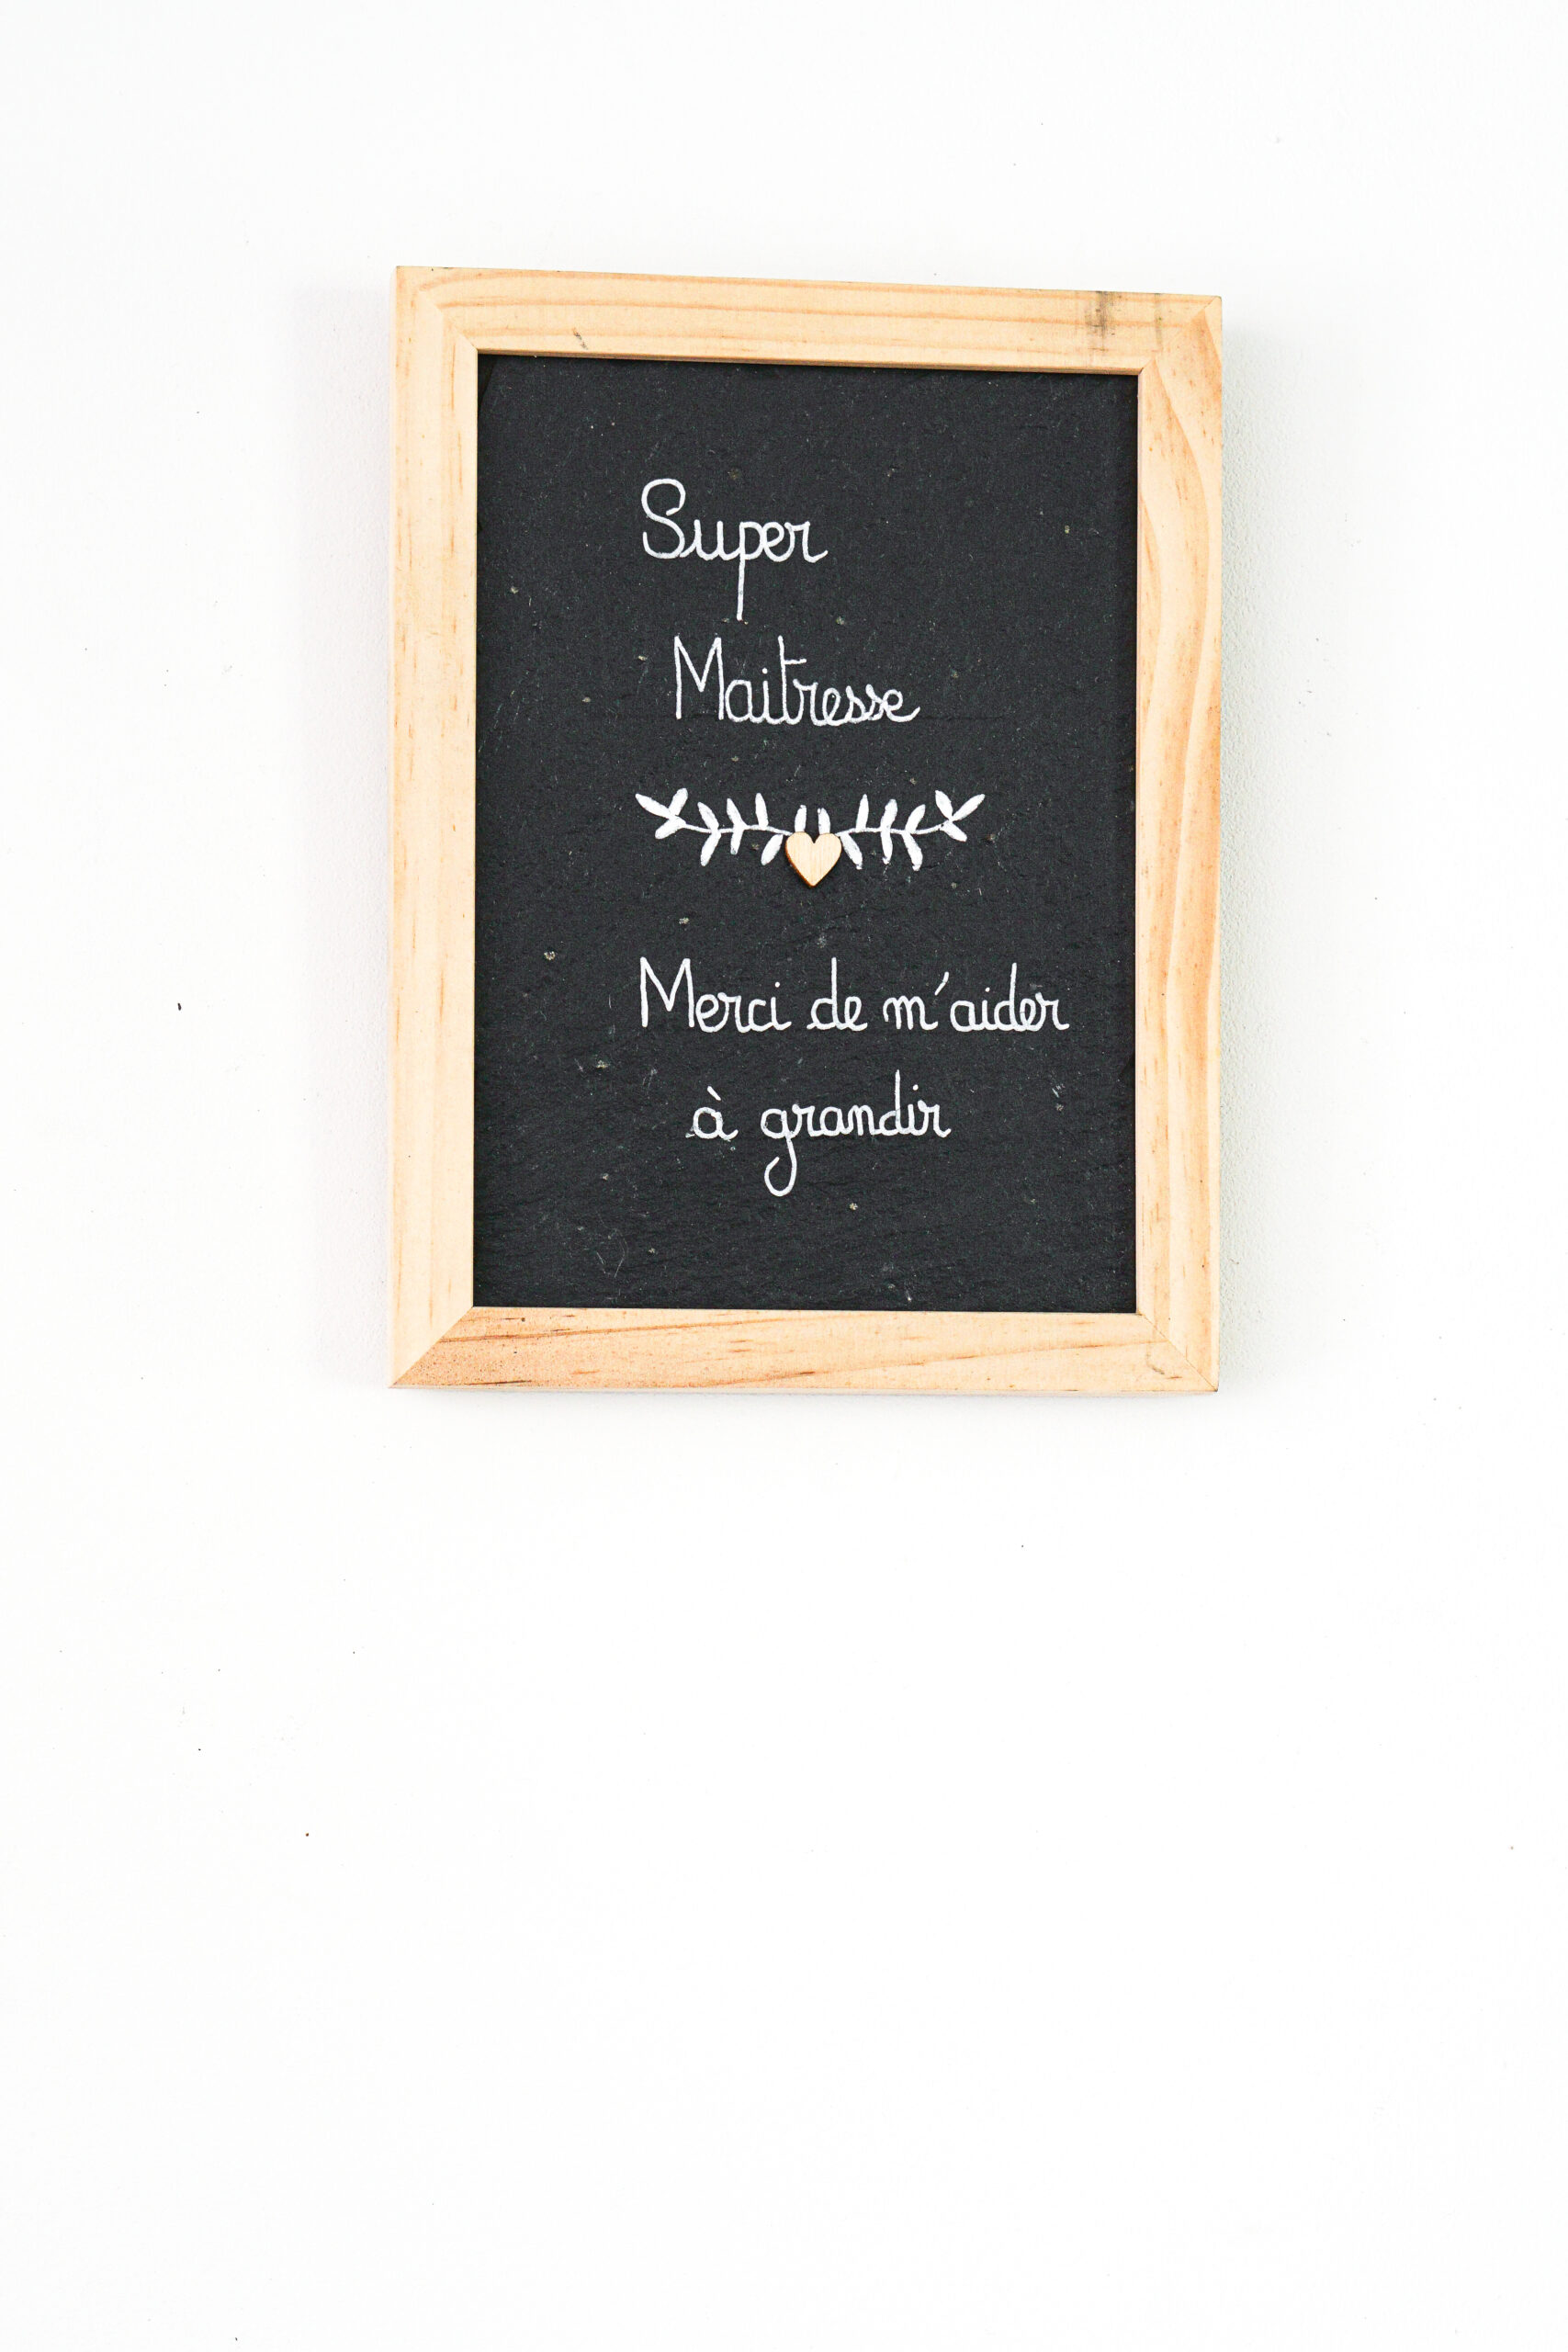 Super
Maitresse
Merci de m'aider
à grandir